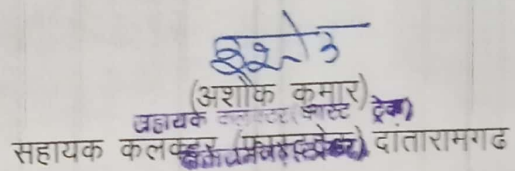 (अशोक कुमार)
सहायक कलक्टर (फास्ट ट्रेक)
सहायक कलक्टर (फास्ट ट्रेक) दांतारामगढ